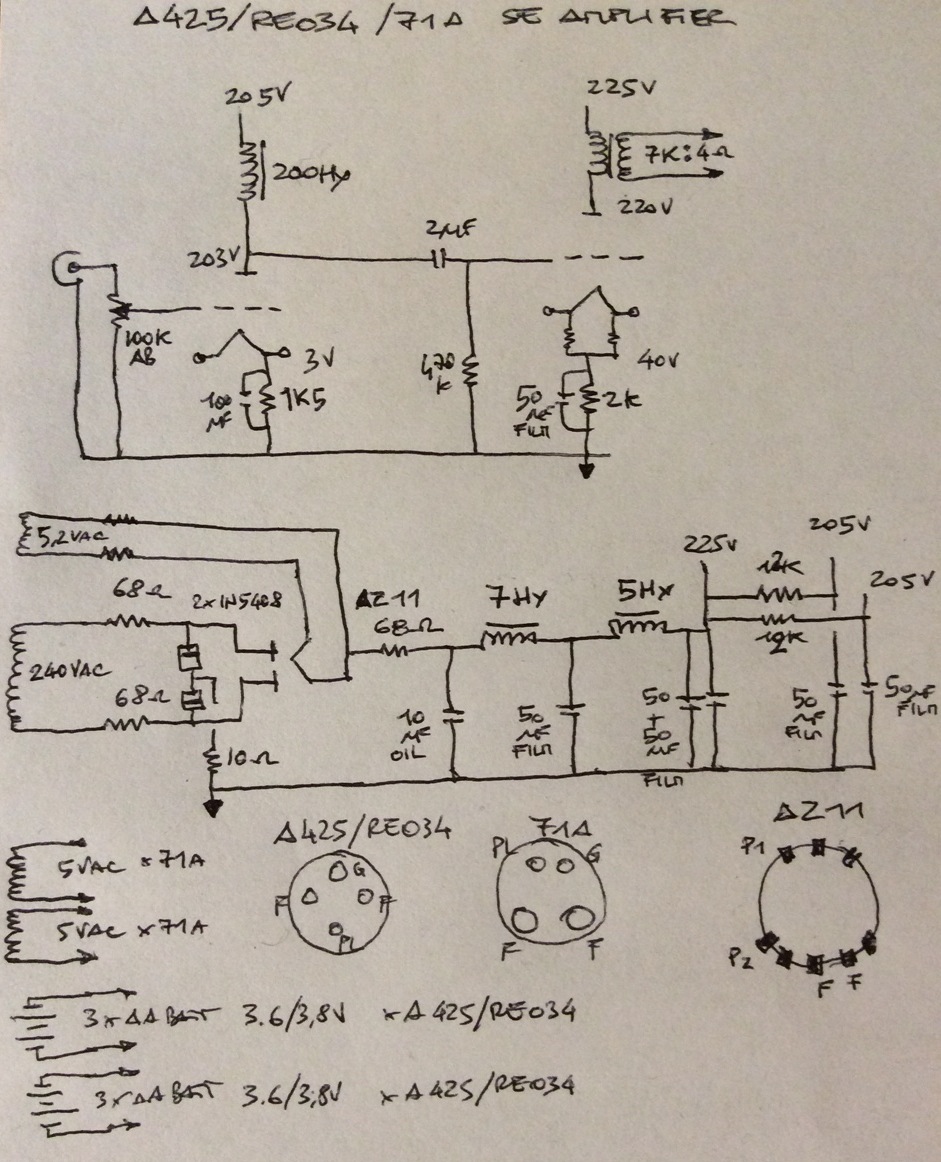 A425/RE034/71A SE AMPLIFIER
205V
225V
200Hy
7K:4Ω
220V
2µF
203V
100K
AB
3V
470
K
40V
100
µF
1K5
50
µF
FILM
2K
5,2VAC
205V
225V
12K
68Ω
2x1N5408
AZ11
7Hy
5Hy
205V
68Ω
12K
240VAC
68Ω
10
µF
OIL
50
µF
FILM
50
+
50
µF
FILM
50
µF
FILM
50µF
FILM
10Ω
A425/RE034
71A
AZ11
5VAC x71A
G
F
F
PL
PL
G
F
F
P1
P2
F
F
5VAC x71A
3xAA BATT 3.6/3,8V xA425/RE034
3xAA BATT 3.6/3,8V xA425/RE034